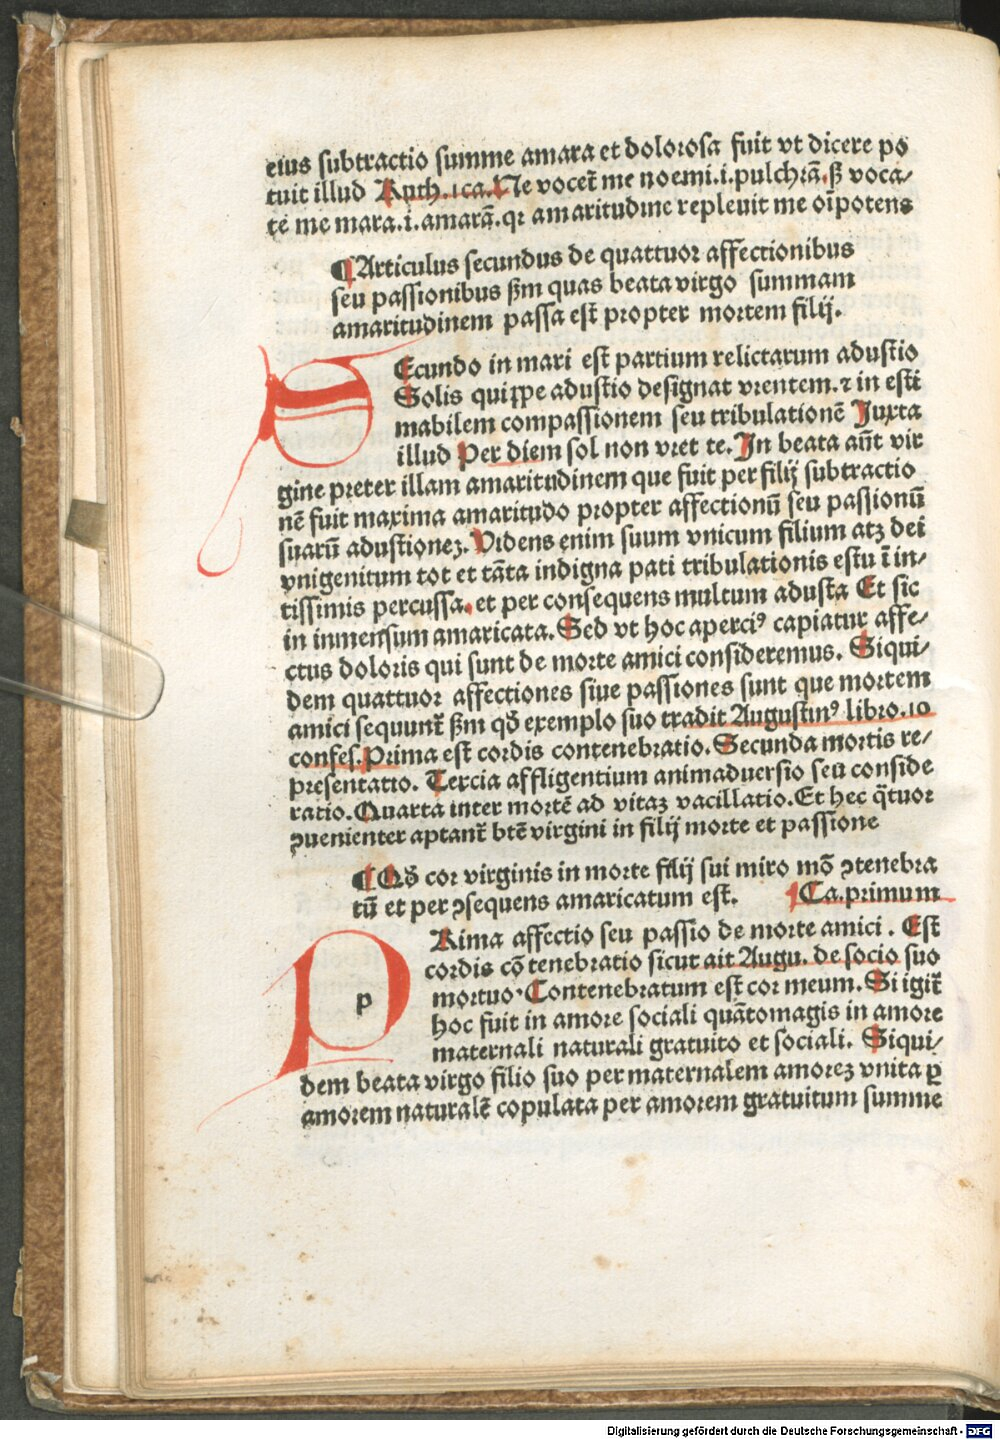 eius subtractio summe amara et dolorosa fuit vt dicere po
tuit illud Ruth.1ca.Ne vocet̄ me noemi.i.pulchrā.sꝫ voca/
te me mara.i.amarā.qꝛ amaritudine repleuit me oīpotens
¶Articulus secundus de quattuor affectionibus
seu passionibus ẜm quas beata virgo summam
amaritudinem passa est propter mortem filij.
SEcundo in mari est partium relictarum adustio
Solis quiꝓpe adustio designat vrentem.⁊ in esti
mabilem compassionem seu tribulationē Juxta
illud Per diem sol non vret te.In beata aūt vir
gine preter illam amaritudinem que fuit per filij subtractio
nē fuit maxima amaritudo propter affectionū seu passionū
suarū adustioneꝫ.Videns enim suum vnicum filium atqꝫ dei
vnigenitum tot et tāta indigna pati tribulationis estu ī in/
tissimis percussa.et per consequens multum adusta Et sic
in inmensum amaricata.Sed vt hoc aperciꝰ capiatur affe/
ctus doloris qui sunt de morte amici consideremus. Siqui/
dem quattuor affectiones siue passiones sunt que mortem
amici sequunt̄ ẜm qd̄ exemplo suo tradit Augustinꝰ libro.10
confes.Prima est cordis contenebratio.Secunda mortis re/
presentatio. Tercia affligentium animaduersio seu conside
ratio.Quarta inter mortē ad vitaꝫ vacillatio.Et hec q̄tuor
ꝯuenienter aptant̄ btē virgini in filij morte et passione
¶Qd̄ cor virginis in morte filij sui miro mō ꝯtenebra
tū et per ꝯsequens amaricatum est. ¶Ca.primum
p
PRima affectio seu passio de morte amici . Est
cordis cō tenebratio sicut ait Augu. de socio suo
mortuo.Contenebratum est cor meum.Si igit̄
hoc fuit in amore sociali quātomagis in amore
maternali naturali gratuito et sociali. Siqui/
dem beata virgo filio suo per maternalem amoreꝫ vnita ꝑ
amorem naturalē copulata per amorem gratuitum summe
Digitalisierung gefördert durch die Deutsche Forschungsgemeinschaft - DFG